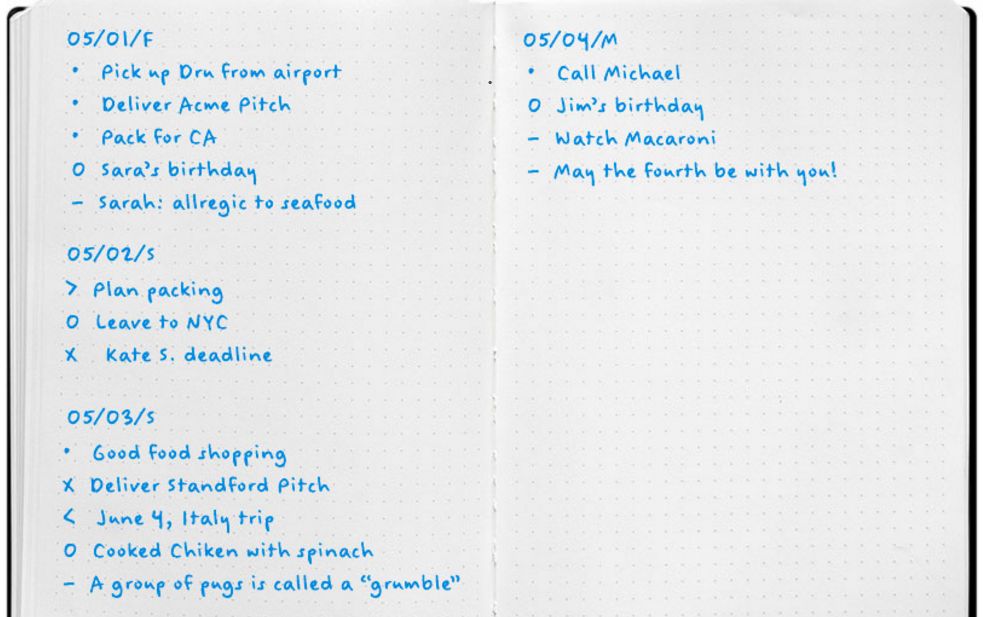 05/01/F
• Pick up Dru from airport
• Deliver Acme Pitch
• Pack for CA
O Sara's birthday
– Sarah: allregic to seafood
05/02/S
> Plan packing
O Leave to NYC
x Kate S. deadline
05/03/S
• Good food shopping
x Deliver Standford Pitch
< June 4, Italy trip
O Cooked Chiken with spinach
– A group of pugs is called a "grumble"
05/04/M
• Call Michael
O Jim's birthday
– Watch Macaroni
– May the fourth be with you!